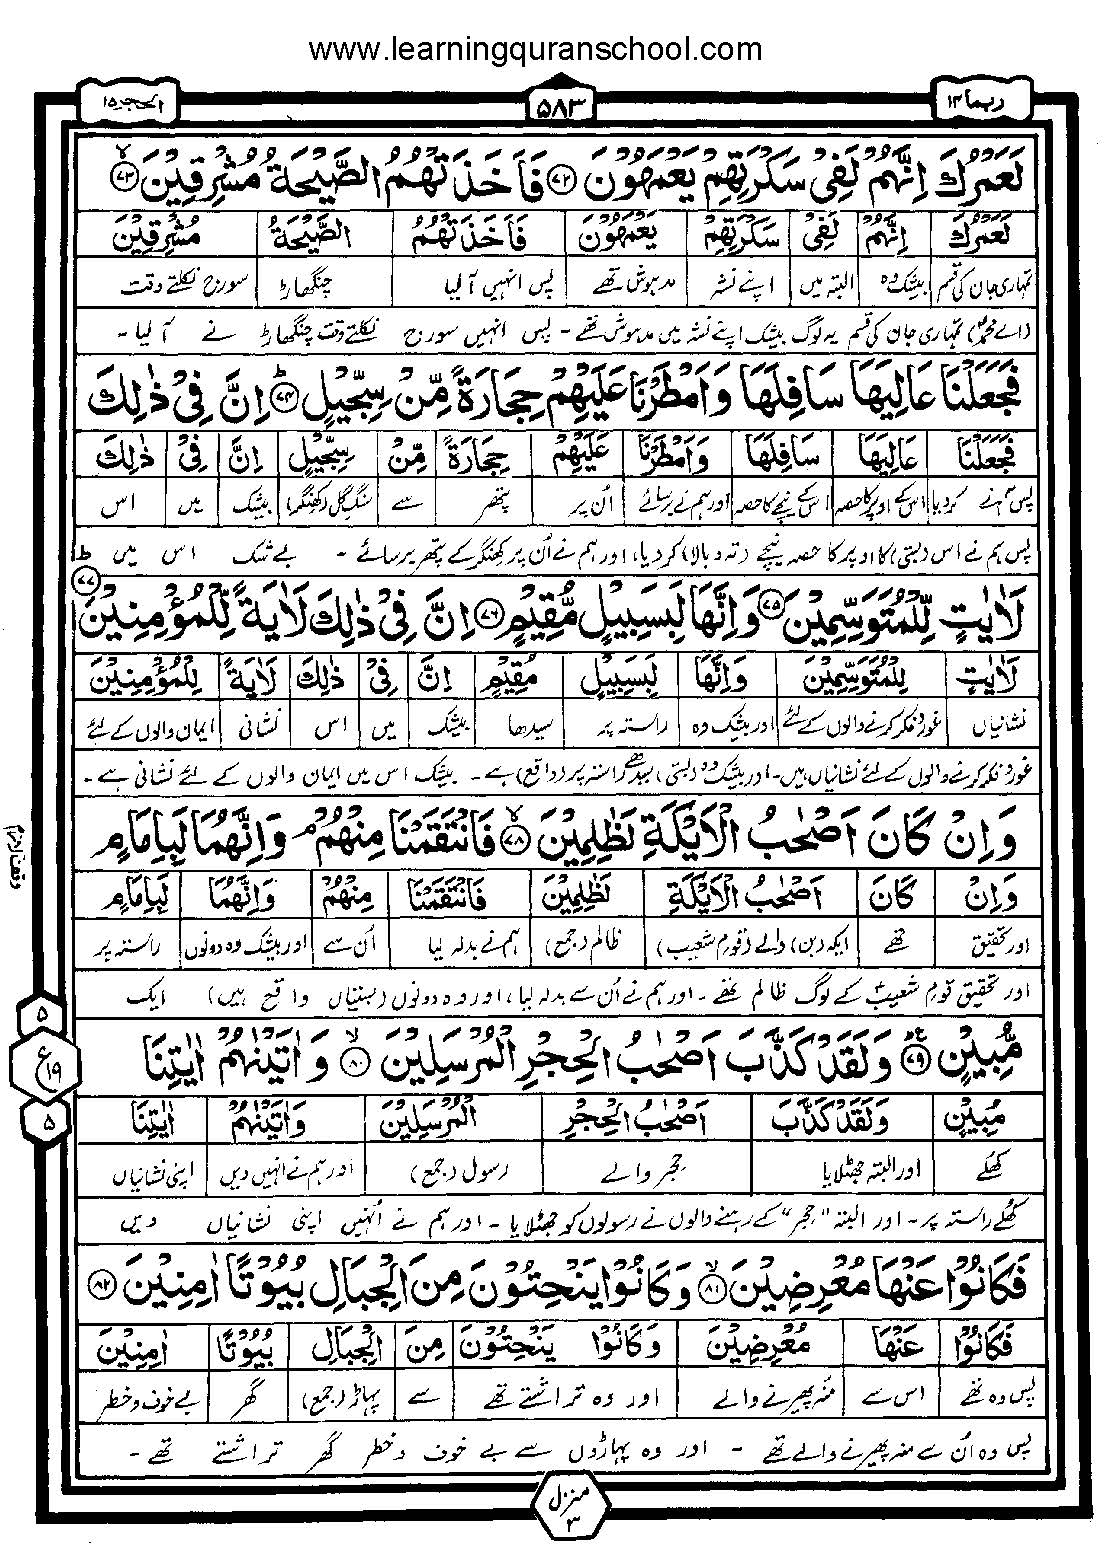 www.learningquranschool.com
ربما ۱۴
۵۸۳
الحجر ۱۵
لَعَمْرُكَ اِنَّهُمْ لَفِیْ سَكْرَتِهِمْ یَعْمَهُوْنَ ۷۲ فَاَخَذَتْهُمُ الصَّیْحَةُ مُشْرِقِیْنَ ۷۳
لَعَمْرُكَ اِنَّهُمْ لَفِیْ سَكْرَتِهِمْ یَعْمَهُوْنَ فَاَخَذَتْهُمُ الصَّیْحَةُ مُشْرِقِیْنَ
تمہاری جان کی قسم بیشک وہ البتہ میں اپنے نشہ مدہوش تھے پس انہیں آ لیا چنگھاڑ سورج نکلتے وقت
(اے محمدؐ) تمہاری جان کی قسم یہ لوگ بیشک اپنے نشہ میں مدہوش تھے۔ پس انہیں سورج نکلتے وقت چنگھاڑ نے آ لیا۔
فَجَعَلْنَا عَالِیَهَا سَافِلَهَا وَاَمْطَرْنَا عَلَیْهِمْ حِجَارَةً مِّنْ سِجِّیْلٍ ۷۴ ط اِنَّ فِیْ ذٰلِكَ
فَجَعَلْنَا عَالِیَهَا سَافِلَهَا وَاَمْطَرْنَا عَلَیْهِمْ حِجَارَةً مِّنْ سِجِّیْلٍ اِنَّ فِیْ ذٰلِكَ
پس ہم نے کردیا اس کے اوپر کا حصہ اس کے نیچے کا حصہ اور ہم نے برسائے اُن پر پتھر سے سنگِ گل (کھنگر) بیشک میں اس
پس ہم نے اس (بستی) کا اوپر کا حصہ نیچے (تہ و بالا) کردیا، اور ہم نے اُن پر کھنگر کے پتھر برسائے۔ بے شک اس میں
لَاٰیٰتٍ لِّلْمُتَوَسِّمِیْنَ ۷۵ وَاِنَّهَا لَبِسَبِیْلٍ مُّقِیْمٍ ۷۶ اِنَّ فِیْ ذٰلِكَ لَاٰیَةً لِّلْمُؤْمِنِیْنَ ۷۷ ط
لَاٰیٰتٍ لِّلْمُتَوَسِّمِیْنَ وَاِنَّهَا لَبِسَبِیْلٍ مُّقِیْمٍ اِنَّ فِیْ ذٰلِكَ لَاٰیَةً لِّلْمُؤْمِنِیْنَ
نشانیاں غور و فکر کرنے والوں کے لئے اور بیشک وہ راستہ پر سیدھا بیشک میں اس نشانی ایمان والوں کے لئے
غور و فکر کرنے والوں کے لئے نشانیاں ہیں۔ اور بیشک وہ (بستی) سیدھے راستہ پر (واقع) ہے۔ بیشک اس میں ایمان والوں کے لئے نشانی ہے۔
وَاِنْ كَانَ اَصْحٰبُ الْاَیْكَةِ لَظٰلِمِیْنَ ۷۸ فَانْتَقَمْنَا مِنْهُمْ م وَاِنَّهُمَا لَبِاِمَامٍ
وَاِنْ كَانَ اَصْحٰبُ الْاَیْكَةِ لَظٰلِمِیْنَ فَانْتَقَمْنَا مِنْهُمْ وَاِنَّهُمَا لَبِاِمَامٍ
اور تحقیق تھے ایکہ (بن) والے (قومِ شعیب) ظالم (جمع) ہم نے بدلہ لیا اُن سے اور بیشک وہ دونوں راستہ پر
اور تحقیق قومِ شعیبؑ کے لوگ ظالم تھے۔ اور ہم نے اُن سے بدلہ لیا، اور وہ دونوں (بستیاں واقع ہیں) ایک
مُّبِیْنٍ ۷۹ وَلَقَدْ كَذَّبَ اَصْحٰبُ الْحِجْرِ الْمُرْسَلِیْنَ ۸۰ وَاٰتَیْنٰهُمْ اٰیٰتِنَا
مُّبِیْنٍ وَلَقَدْ كَذَّبَ اَصْحٰبُ الْحِجْرِ الْمُرْسَلِیْنَ وَاٰتَیْنٰهُمْ اٰیٰتِنَا
کھلے اور البتہ جھٹلایا حجر والے رسول (جمع) اور ہم نے انہیں دیں اپنی نشانیاں
کھلے راستہ پر۔ اور البتہ "حجر" کے رہنے والوں نے رسولوں کو جھٹلایا۔ اور ہم نے اُنہیں اپنی نشانیاں دیں
فَكَانُوْا عَنْهَا مُعْرِضِیْنَ ۸۱ وَكَانُوْا یَنْحِتُوْنَ مِنَ الْجِبَالِ بُیُوْتًا اٰمِنِیْنَ ۸۲
فَكَانُوْا عَنْهَا مُعْرِضِیْنَ وَكَانُوْا یَنْحِتُوْنَ مِنَ الْجِبَالِ بُیُوْتًا اٰمِنِیْنَ
پس وہ تھے اس سے منہ پھیرنے والے اور وہ تراشتے تھے سے پہاڑ (جمع) گھر بے خوف و خطر
پس وہ اُن سے منہ پھیرنے والے تھے۔ اور وہ پہاڑوں سے بے خوف و خطر گھر تراشتے تھے۔
۵
ع ۱۹
۵
منزل ۳